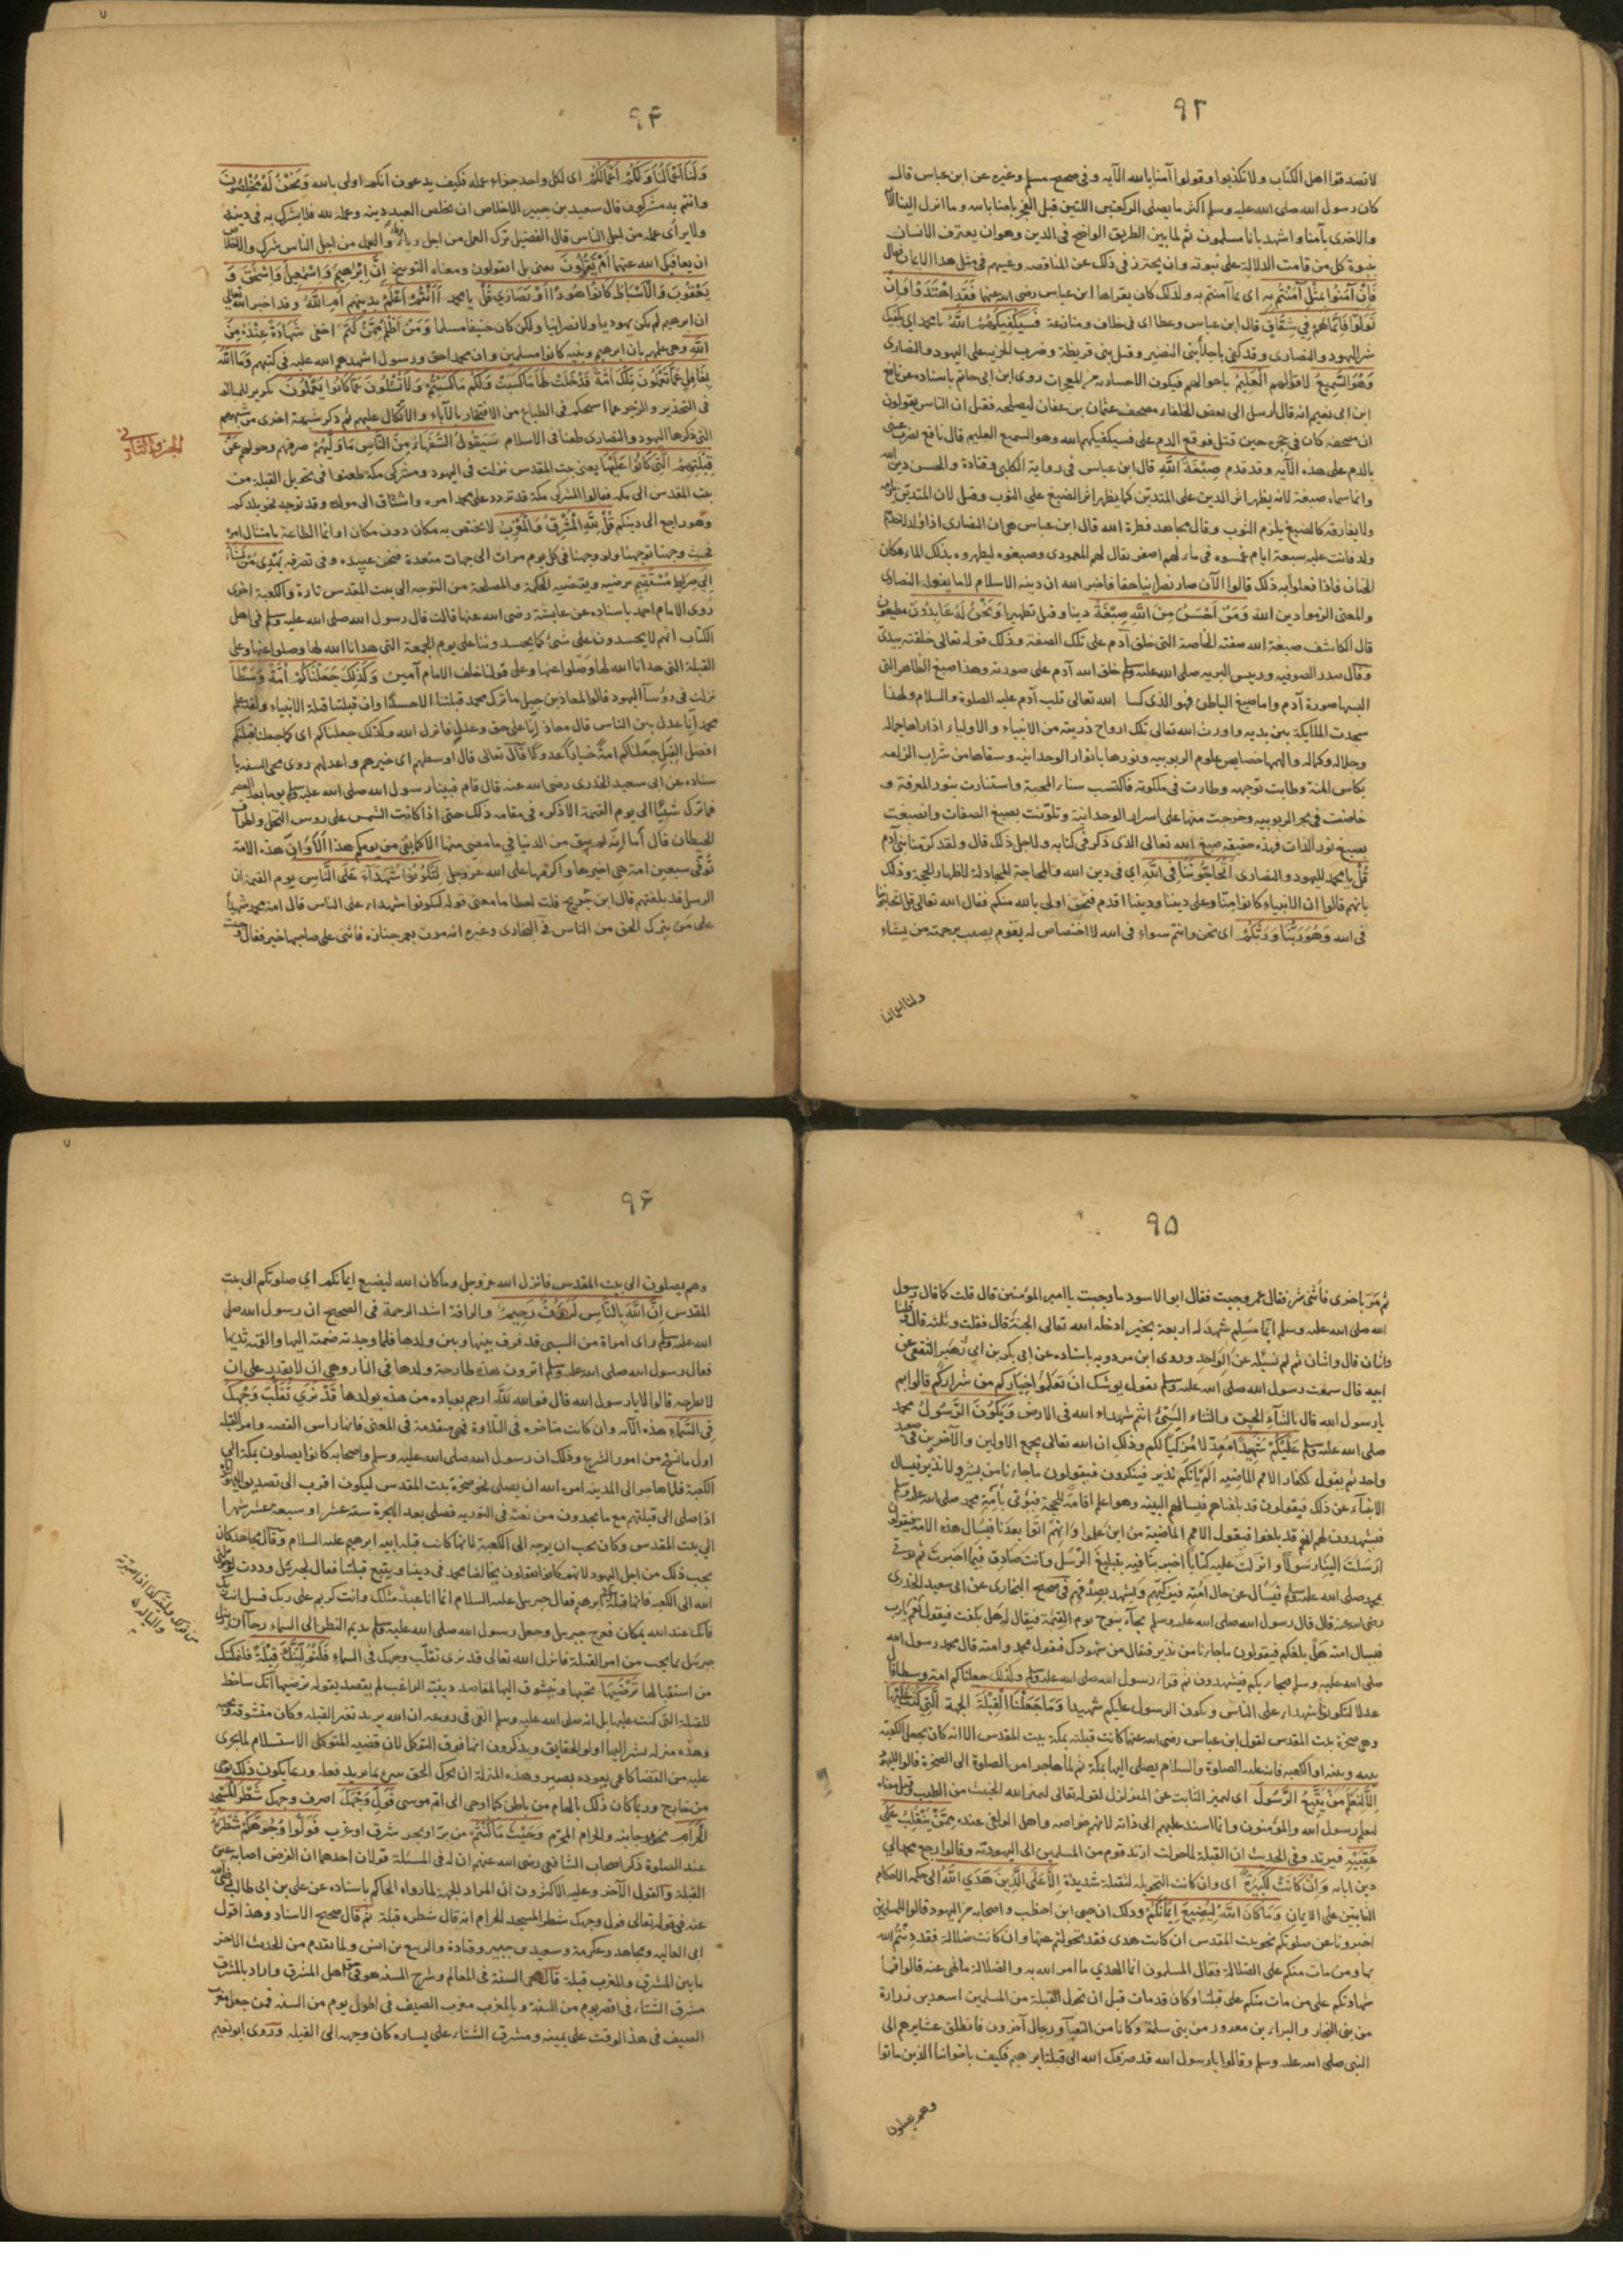 ٩٣
لا تصدقوا اهل الكتاب ولا تكذبوا وقولوا آمنا بالله الآيه وفى صحيح مسلم وغيره عن ابن عباس قال
كان رسول الله صلى الله عليه وسلم اكثر ما يصلى الركعتين اللتين قبل الفجر بامنا بالله وما انزل الينا
والاخرى بآمنا واشهد بانا مسلمون ثم لما بين الطريق الواضح فى الدين وهو ان يعترف الانسان
بنبوة كل من قامت الدلالة على نبوته وان يحترز فى ذلك عن المناقصه وغيبهم فى مثل هذا الايمان فقال
فَاِنْ آمَنُوا بِمِثْلِ مَا آمَنْتُمْ بِهِ اى بما آمنتم به ولذلك كان يقراها ابن عباس رضى الله عنهما فَقَدِ اهْتَدَوْا وَاِنْ
تَوَلَّوْا فَاِنَّمَا هُمْ فِي شِقَاقٍ قال ابن عباس وعطا اى فى خلاف ومنازعة فَسَيَكْفِيكَهُمُ اللَّهُ يا محمد اى يكفيك
شر اليهود والنصارى وقد كفى باجلاء بنى النضير وقتل بنى قريظة وضرب الجزيه على اليهود والنصارى
وَهُوَ السَّمِيعُ لاقوالهم الْعَلِيمُ باحوالهم فيكون الاخبار من المعجزات روى ابن ابى حاتم باسناده عن نافع
ابن ابى نعيم انه قال ارسل الى بعض الخلفاء مصحف عثمان بن عفان ليصلحه فقيل ان الناس يقولون
ان مصحفه كان فى حجره حين قتل فوقع الدم على فسيكفيكهم الله وهو السميع العليم قال نافع
بالدم على هذه الآيه وقد قدم صِبْغَةَ اللَّهِ قال ابن عباس فى رواية الكلبى وقتادة والحسن دين الله
وانما سماه صبغة لانه يظهر اثر الدين على المتديّن كما يظهر اثر الصبغ على الثوب وقيل لان المتديّن
ولا يفارقه كالصبغ يلزم الثوب وقال مجاهد فطرة الله قال ابن عباس هى ان النصارى اذا ولد لاحدهم
ولد فاتت عليه سبعة ايام غمسوه فى ماء لهم اصفر يقال لهم المعمودى وصبغوه ليطهروه بذلك الماء مكان
الختان فاذا فعلوا به ذلك قالوا الآن صار نصرانيا حقا فاخبر الله ان دينه الاسلام لا ما يفعله النصارى
والمعنى الزموا دين الله وَمَنْ اَحْسَنُ مِنَ اللَّهِ صِبْغَةً دينا وقيل تطهيرا وَنَحْنُ لَهُ عَابِدُونَ مطيعون
قال الكاشف صبغة الله صفته الخاصة التى خلق آدم على تلك الصفة وذلك قوله تعالى خلقته بيدىّ
وقال صدر الصوفيه ورئيس البريه صلى الله عليه وسلم خلق الله آدم على صورته وهذا صبغ الظاهر التى
البسها صورة آدم واما صبغ الباطن فهو الذى كسا الله تعالى قلب آدم عليه الصلوة والسلام ولهذا
سجدت الملايكة بين يديه واورث الله تعالى تلك ارواح ذريته من الانبياء والاولياء اذ اراها جماله
وجلاله وكماله والهمها خصايص علوم الربوبيه ونورها بانوار الوحدانيه وسقاها من شراب الزلفه
بكاس المنة وطابت بتوجهه وطارت فى ملكوته فاكتسب سناء المحبة واستنارت بنور المعرفة و
خاضت فى بحر الربوبيه وخرجت منها على اسرار الوحدانية وتلوّنت بصبغ الصفات وانصبغت
بصبغ نور الذات فهذه حقيقه صبغ الله تعالى الذى ذكر فى كتابه ولاجل ذلك قال ولقد كرمنا بنى آدم
قُلْ يا محمد لليهود والنصارى اَتُحَاجُّونَنَا فِي اللَّهِ اى فى دين الله والمحاجة المجادلة لاظهار الحجة وذلك
بانهم قالوا ان الانبياء كانوا منّا وعلى ديننا وديننا اقدم فنحن اولى بالله منكم فقال الله تعالى قل اتحاجوننا
فى الله وَهُوَ رَبُّنَا وَرَبُّكُمْ اى نحن وانتم سواء فى الله لا اختصاص له بقوم يصيب برحمته من يشاء
ولنا اعمالنا
٩۴
وَلَنَا اَعْمَالُنَا وَلَكُمْ اَعْمَالُكُمْ اى لكل واحد جزاء عمله فكيف يدعون انكم اولى بالله وَنَحْنُ لَهُ مُخْلِصُونَ
وانتم به مشركون قال سعيد بن جبير الاخلاص ان يخلص العبد دينه وعمله لله فلا يشرك به فى دينه
ولا يرآى عمله من اجل الناس قال الفضيل ترك العمل من اجل رياء والعمل من اجل الناس شرك والاخلاص
ان يعافيك الله عنهما اَمْ يَقُولُونَ يعنى بل اتقولون ومعناه التوبيخ اِنَّ اِبْرٰهِيمَ وَاِسْمٰعِيلَ وَاِسْحٰقَ وَ
يَعْقُوبَ وَالْاَسْبَاطَ كَانُوا هُودًا اَوْ نَصَارَى قُلْ يا محمد ءَاَنْتُمْ اَعْلَمُ بدينهم اَمِ اللَّهُ وقد اخبر الله تعالى
ان ابرهيم لم يكن يهوديا ولا نصرانيا ولكن كان حنيفا مسلما وَمَنْ اَظْلَمُ مِمَّنْ كَتَمَ اخفى شَهَادَةً عِنْدَهُ مِنَ
اللَّهِ وهى علمهم بان ابرهيم وبنيه كانوا مسلمين وان محمدا حق ورسول اشهدهم الله عليه فى كتبهم وَمَا اللَّهُ
بِغَافِلٍ عَمَّا تَعْمَلُونَ تِلْكَ اُمَّةٌ قَدْ خَلَتْ لَهَا مَا كَسَبَتْ وَلَكُمْ مَا كَسَبْتُمْ وَلَا تُسْئَلُونَ عَمَّا كَانُوا يَعْمَلُونَ تكرير للمبالغه
فى التحذير والزجر عما استحكم فى الطباع من الافتخار بالآباء والاتّكال عليهم ثم ذكر شبهة اخرى من شبههم
التى ذكرها اليهود والنصارى طعنا فى الاسلام سَيَقُولُ السُّفَهَاءُ مِنَ النَّاسِ مَا وَلّٰيهُمْ صرفهم وحولهم عَنْ
قِبْلَتِهِمُ الَّتِي كَانُوا عَلَيْهَا يعنى بيت المقدس نزلت فى اليهود ومشركى مكة طعنوا فى تحويل القبلة من
بيت المقدس الى مكه فقالوا لمشركى مكة قد تردد على محمد امره واشتاق الى مولده وقد توجه نحو بلدكم
وهو راجع الى دينكم قُلْ لِلَّهِ الْمَشْرِقُ وَالْمَغْرِبُ لا يختص به مكان دون مكان وانما الطاعة بامتثال امره
فحيث وجهنا توجهنا ولو وجهنا فى كل يوم مرات الى جهات متعددة فنحن عبيده وفى تصرفه يَهْدِى مَنْ يَشَاءُ
اِلَى صِرَاطٍ مُسْتَقِيمٍ مرضيه ويقتضيه الحكمة والمصلحة من التوجه الى بيت المقدس تارة والكعبة اخرى
روى الامام احمد باسناده عن عايشة رضى الله عنها قالت قال رسول الله صلى الله عليه وسلم فى اهل
الكتاب انهم لا يحسدون على شئ كما يحسدوننا على يوم الجمعة التى هدانا الله لها وضلوا عنها وعلى
القبلة التى هدانا الله لها وضلوا عنها وعلى قولنا خلف الامام آمين وَكَذٰلِكَ جَعَلْنَاكُمْ اُمَّةً وَسَطًا
نزلت فى رؤسآ اليهود قالوا لمعاذ بن جبل ما ترك محمد قبلتنا الا حسدا وان قبلتنا قبلة الانبياء ولقد علم
محمد انّا عدل بين الناس قال معاذ انا على حق وعدل فانزل الله وكذلك جعلناكم اى كما جعلنا قبلتكم
افضل القبل جعلناكم امة خيارا عدولا قال تعالى قال اوسطهم اى خيرهم واعدلهم روى محى السنه با
سناده عن ابى سعيد الخدرى رضى الله عنه قال قام فينا رسول الله صلى الله عليه وسلم يوما بعد العصر
فما ترك شيئا الى يوم القيمة الا ذكره فى مقامه ذلك حتى اذا كانت الشمس على روس النخل واطراف
الحيطان قال أما انه لم يبق من الدنيا فى ما مضى منها الا كما بقى من يومكم هذا الا وان هذه الامة
توفى سبعين امة هى اخيرها واكرمها على الله عز وجل لِتَكُونُوا شُهَدَاءَ عَلَى النَّاسِ يوم القيمة ان
الرسل قد بلغتهم قال ابن جريج قلت لعطا ما معنى قوله لتكونوا شهداء على الناس قال امة محمد شهداء
على من يترك الحق من الناس فى البخارى وغيره انه مرت بعمر جنازه فأثنى على صاحبها خير فقال وجبت
الجزو الثانى
٩۵
ثم مرّ باخرى فأثنى شر فقال عمر وجبت فقال ابو الاسود ما وجبت يا امير المؤمنين قال قلت كما قال رسول
الله صلى الله عليه وسلم ايما مسلم شهد له اربعة بخير ادخله الله تعالى الجنة قال فقلت وثلثه قال وثلثه قلنا
واثنان قال واثنان ثم لم نسئله عن الواحد وروى ابن مردويه باسناده عن ابى بكر بن ابى زهير الثقفى عن
ابيه قال سمعت رسول الله صلى الله عليه وسلم يقول يوشك ان تعلموا خياركم من شراركم قالوا بم
يا رسول الله قال بالثناء الحسن والثناء السئ انتم شهداء الله فى الارض وَيَكُونَ الرَّسُولُ محمد
صلى الله عليه وسلم عَلَيْكُمْ شَهِيدًا معدّلا مزكّيا لكم وذلك ان الله تعالى يجمع الاولين والآخرين فى صعيد
واحد ثم يقول لكفار الامم الماضيه الم ياتكم نذير فينكرون فيقولون ما جاءنا من بشير ولا نذير فيسال
الانبياء عن ذلك فيقولون قد بلغناهم فيسالهم البينه وهو اعلم اقامة للحجة فيؤتى بأمة محمد صلى الله عليه وسلم
فيشهدون لهم انهم قد بلغوا فيقول الامم الماضية من اين علموا وانهم اتوا بعدنا فيسال هذه الامة فيقولون
ارسلت الينا رسولا وانزلت عليه كتابا اخبرتنا فيه بتبليغ الرسل وانت صادق فيما اخبرت ثم يؤتى
بمحمد صلى الله عليه وسلم فيسال عن حال امته فيزكيهم ويشهد بصدقهم فى صحيح البخارى عن ابى سعيد الخدرى
رضى الله عنه قال قال رسول الله صلى الله عليه وسلم يجآء بنوح يوم القيمة فيقال له هل بلغت فيقول نعم يا رب
فيسال امته هل بلغكم فيقولون ما جاءنا من نذير فيقال من شهودك فيقول محمد وامته قال محمد رسول الله
صلى الله عليه وسلم فيجاء بكم فيشهدون ثم قراء رسول الله صلى الله عليه وسلم وكذلك جعلناكم امة وسطا قال
عدلا لتكونوا شهداء على الناس ويكون الرسول عليكم شهيدا وَمَا جَعَلْنَا الْقِبْلَةَ الجهة الَّتِي كُنْتَ عَلَيْهَا
وهى صخرة بيت المقدس لقول ابن عباس رضى الله عنهما كانت قبلته بمكة بيت المقدس الا انه كان يجعل الكعبة
بينه وبينه او الكعبه فانه عليه الصلوة والسلام يصلى اليها بمكة ثم لما هاجر امر بالصلوة الى الصخرة
اِلَّا لِنَعْلَمَ مَنْ يَتَّبِعُ الرَّسُولَ اى ليميز الثابت عن المتزلزل لقوله تعالى ليميز الله الخبيث من الطيب وقيل معناه
ليعلم رسول الله والمؤمنون وانما اسند علمهم الى ذاته لانهم خواصه واهل الزلفى عنده مِمَّنْ يَنْقَلِبُ عَلَى
عَقِبَيْهِ فيرتد وفى الحديث ان القبلة لما حولت ارتد قوم من المسلمين الى اليهوديه وقالوا رجع محمد الى
دين ابائه وَاِنْ كَانَتْ لَكَبِيرَةً اى وان كانت التحويله لثقيلة شديدة اِلَّا عَلَى الَّذِينَ هَدَى اللَّهُ الى حكمه الاحكام
الثابتين على الايمان وَمَا كَانَ اللَّهُ لِيُضِيعَ اِيْمَانَكُمْ وذلك ان حيى ابن اخطب واصحابه من اليهود قالوا للمسلمين
اخبرونا عن صلوتكم نحو بيت المقدس ان كانت هدى فقد تحولتم عنها وان كانت ضلالة فقد دنتم الله
بها ومن مات منكم على الضلالة فقال المسلمون انما الهدى ما امر الله به والضلالة ما نهى عنه قالوا فما
شهادتكم على من مات منكم على قبلتنا وكان قد مات قبل ان تحول القبلة من المسلمين اسعد بن زرارة
من بنى النجار والبراء بن معرور من بنى سلمة وكانا من النقباء ورجال آخرون فانطلق عشايرهم الى
النبى صلى الله عليه وسلم وقالوا يا رسول الله قد صرفك الله الى قبلة ابرهيم فكيف باخواننا الذين ماتوا
وهم يصلون
٩۶
وهم يصلون الى بيت المقدس فانزل الله عز وجل وما كان الله ليضيع ايمانكم اى صلوتكم الى بيت
المقدس اِنَّ اللَّهَ بِالنَّاسِ لَرَؤُفٌ رَحِيمٌ والرافة اشد الرحمة فى الصحيح ان رسول الله صلى
الله عليه وسلم راى امراة من السبى قد فرق بينها وبين ولدها فلما وجدته ضمته اليها والقمته ثديها
فقال رسول الله صلى الله عليه وسلم اترون هذه طارحة ولدها فى النار وهى ان لا يقدر على ان
لا تطرحه قالوا لا يا رسول الله قال فوالله لَلّٰه ارحم بعباده من هذه بولدها قَدْ نَرَى تَقَلُّبَ وَجْهِكَ
فِي السَّمَاءِ هذه الآيه وان كانت متاخره فى التلاوة فهى متقدمة فى المعنى فانها راس القصه وامر القبله
اول ما نسخ من امور الشرع وذلك ان رسول الله صلى الله عليه وسلم واصحابه كانوا يصلون بمكة الى
الكعبة فلما هاجر الى المدينه امره الله ان يصلى نحو صخرة بيت المقدس ليكون اقرب الى تصديق اليهود اياه
اذا صلى الى قبلتهم مع ما يجدون من نعته فى التوريه فصلى بعد الهجرة ستة عشر او سبعة عشر شهرا
الى بيت المقدس وكان يحب ان يوجه الى الكعبة لانها كانت قبلة ابيه ابرهيم عليه السلام وقال مجاهد كان
يحب ذلك من اجل اليهود لانهم كانوا يقولون يخالفنا محمد فى ديننا ويتبع قبلتنا فقال لجبرئل وددت لو حولنى
الله الى الكعبه فانها قبلة ابى ابرهيم فقال جبريل عليه السلام انما انا عبد مثلك وانت كريم على ربك فسل انت ربك
فانك عند الله بمكان فعرج جبريل وجعل رسول الله صلى الله عليه وسلم يديم النظر الى السماء رجاآ ان ينزل
جبرئل بما يحب من امر القبلة فانزل الله تعالى قد نرى تقلّب وجهك فى السماء فَلَنُوَلِّيَنَّكَ قِبْلَةً فلنمكنك
من استقبالها تَرْضَيٰهَا تحبها وتتشوف اليها لمقاصد دينيّه الراغب لم يقصد بقوله ترضيها انك ساخط
للقبلة التى كنت عليها بل انه صلى الله عليه وسلم القى فى روعه ان الله يريد تغير القبله وكان متشوقه
وهذه منزله يشير اليها اولو الحقايق ويذكرون انها فوق التوكل لان قضيه المتوكل الاستسلام لما يجرى
عليه من القضا كاعمى يعوده بصير وهذه المنزلة ان يحرك الحق سره بما يريد فعله وربما يكون ذلك
من خارج وربما كان ذلك بالهام من باطن كما اوحى الى ام موسى فَوَلِّ وَجْهَكَ اصرف وجهك شَطْرَ الْمَسْجِدِ
الْحَرَامِ نحوه وجانبه والحرام المحرّم وَحَيْثُ مَا كُنْتُمْ من برّ او بحر شرق او غرب فَوَلُّوا وُجُوهَكُمْ شَطْرَهُ
عند الصلوة ذكر اصحاب الشافعى رضى الله عنهم ان له فى المسئلة قولان احدهما ان الفرض اصابة عين
القبلة والقول الآخر وعليه الاكثرون ان المراد الجهة لما رواه الحاكم باسناده عن على بن ابى طالب رضى الله
عنه فى قوله تعالى فول وجهك شطر المسجد الحرام انه قال شطره قبلة ثم قال صحيح الاسناد وهذا قول
ابى العاليه ومجاهد وعكرمة وسعيد بن جبير وقتادة والربيع بن انس ولما تقدم من الحديث الآخر
ما بين المشرق والمغرب قبلة قال محى السنة فى المعالم وشرح السنه هو فى حق اهل المشرق واراد بالمشرق
مشرق الشتاء فى اقصر يوم من السنة وبالمغرب مغرب الصيف فى اطول يوم من السنه فمن جعل مغرب
الصيف فى هذا الوقت على يمينه ومشرق الشتاء على يساره كان وجهه الى القبله وروى ابو نعيم